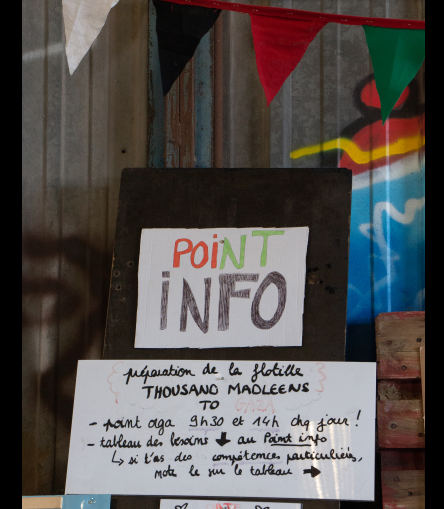 POINT
INFO
préparation de la flotille
THOUSAND MADLEENS
TO GAZA
- point aga 9h30 et 14h chq jour !
- tableau des besoins ↓ au Point info
↳ si t'as des compétences particulières,
note le sur le tableau →